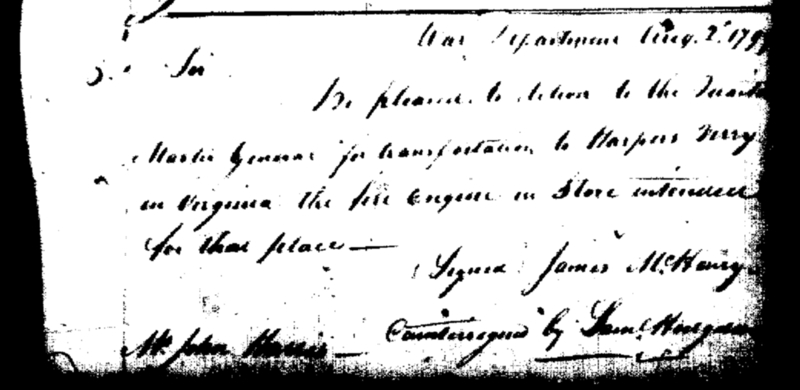 War Department Aug. 2d 179
Sir
Be pleased to deliver to the Quarter
Master General for transportation to Harpers Ferry
in Virginia the fire Engine in Store intended
for that place —
Signed James McHenry
Countersigned by Saml. Hodgdon
Mr John Harris